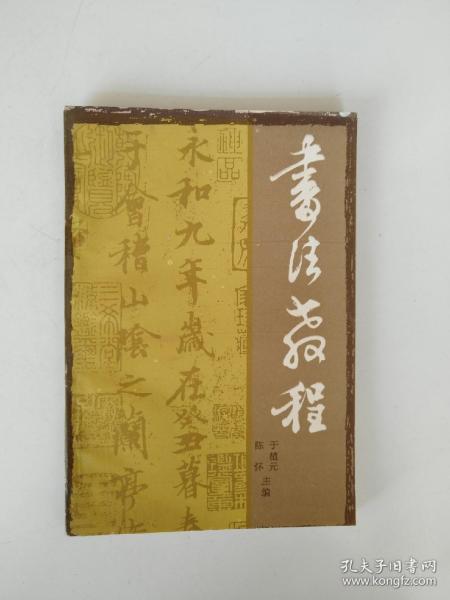 书法教程
于植元
陈怀 主编
永和九年岁在癸丑暮春
于会稽山陰之蘭亭
孔夫子旧书网
www.kongfz.com